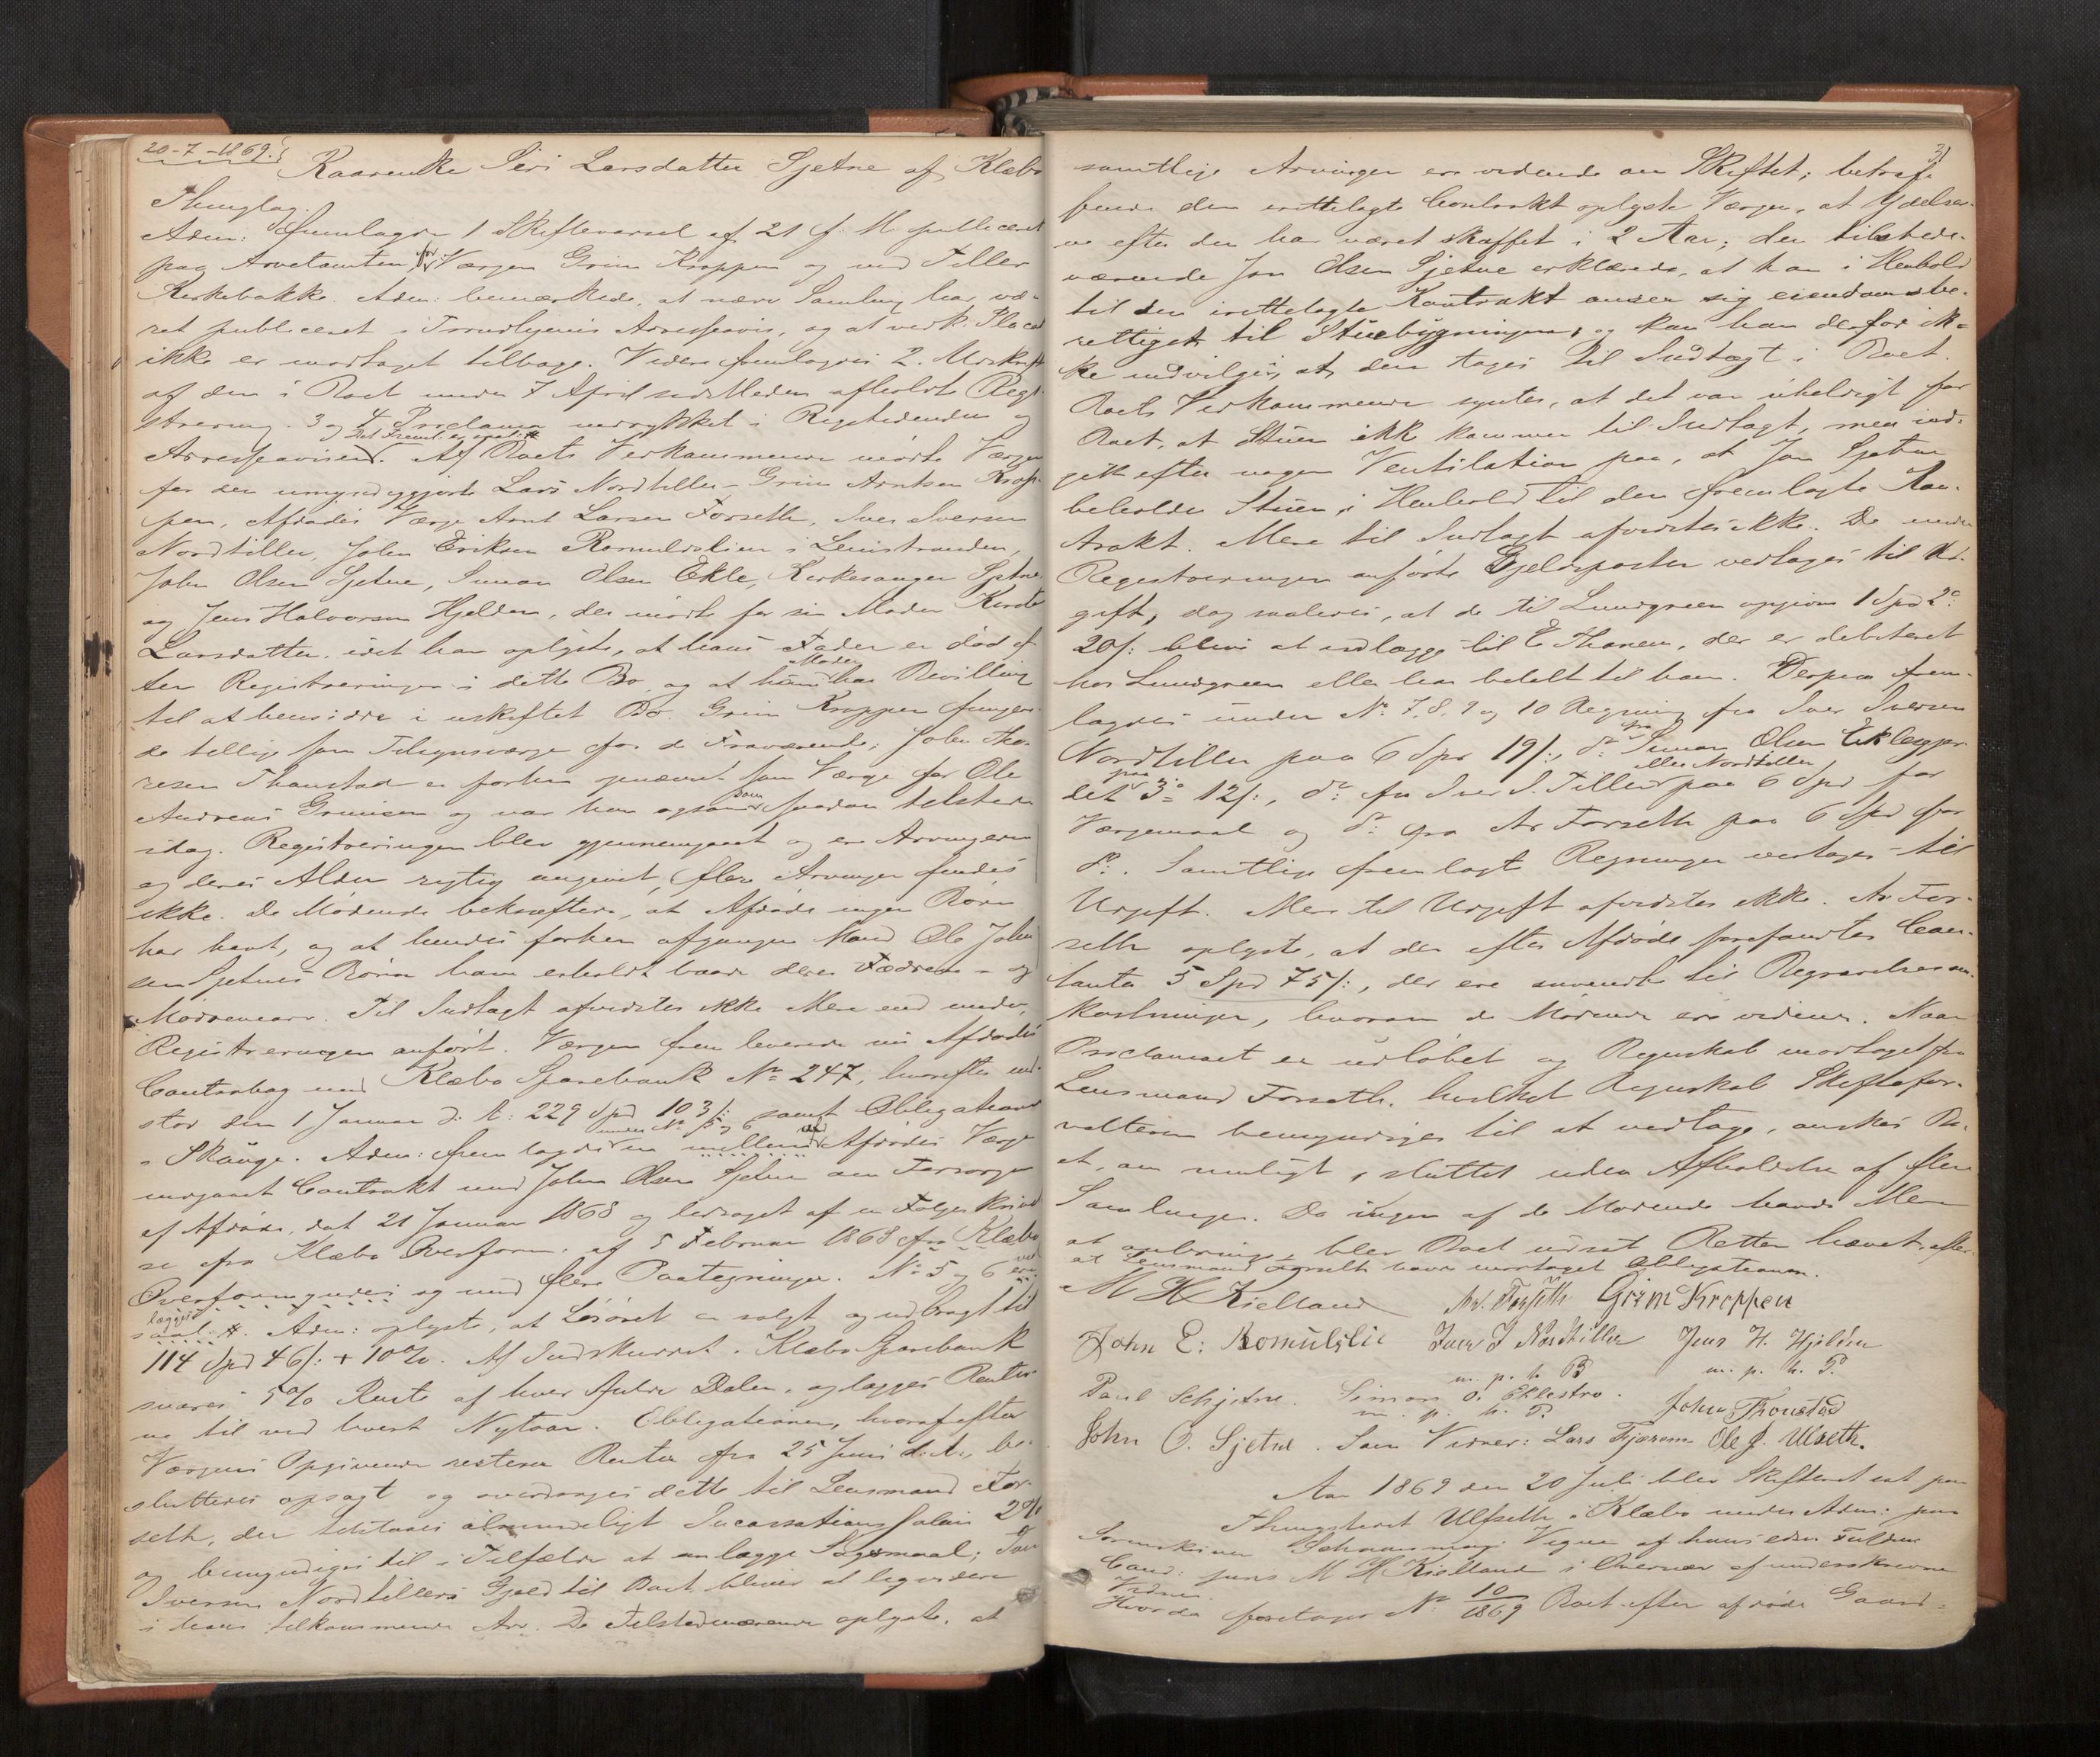 20-7-1869.
Kaarenke Siri Larsdatter Sjetne af Klæbo
Thinglag.
Adm: fremlagde 1 Skiftevarsel af 21 f. M. publiceret
paa Arvetomten for Værgen Grim Kroppen og ved Tiller
Kirkebakke. Adm: bemærkede, at nærv. Samling har væ-
ret publiceret i Trondhjems Adresseavis, og at vedk. Placat
ikke er modtaget tilbage. Videre fremlagdes 2. Udskrift
af den i Boet under 7 April sidstleden afholdte Regi-
strering. 3 og 4 Proclama indrykket i Rigstidenden og
Adresseavisen. Af Boets Vedkommende mødte Værgen
for den umyndiggjorte Lars Nordtiller - Grim Arntsen Krop-
pen, Afdødes Værge Arnt Larsen Forseth, Iver Iversen
Nordtiller, John Eriksen Romulslien i Leinstranden,
John Olsen Sjetne, Simon Olsen Ekle, Kirkesanger Sjetne
og Jens Halvorsen Hjelden, der mødte for sin Moder Kirsti
Larsdatter, idet han oplyste, at hans Fader er død ef-
ter Registreringen i dette Bo, og at hans Moder har Bevilling
til at hensidde i uskiftet Bo. Grim Kroppen funger-
de tillige som Tilsynsværge for de Fraværende; John Tho-
resen Thonstad er forhen opnævnt som Værge for Ole
Andreas Grimsen og var han ogsaa som saadan tilstede
idag. Registreringen blev gjennemgaaet og er Arvingerne
og deres Alder rigtig angivet, flere Arvinger findes
ikke. De Mødende bekræftede, at Afdøde ingen Børn
har havt, og at hendes forhen afgangne Mand Ole John-
sen Sjetnes Børn have erholdt baade deres Fædrene- og
Mødrenearv. Til Indtægt afvidstes ikke Mere end under
Registreringen anført. Værgen fremleverede nu Afdødes
Contrabog med Klæbo Sparebank No 247, hvorefter ind-
stod den 1 Januar d. A: 229 Spd 103 /: samt Obligationer
i Skauge. Adm: fremlagde under No 5 og 6 en mellem Afdødes Værge
indgaaet Contrakt med John Olsen Sjetne om Forsorgen
af Afdøde, dat 21 Januar 1868 og ledsaget af en Følgeskrivel-
se fra Klæbo Overform. af 5 Februar 1868 fra Klæbo
Overformynderi og med flere Paategninger. No 5 og 6
lægges
Adm: oplyste, at Løsøret er solgt og udbragt til
114 Spd 46 /: + 10 %. Af Indskuddet i Klæbo Sparebank
svares 5 % Rente af hver fulde Daler, og lægges Renter-
ne til ved hvert Nytaar. Obligationen, hvoraf efter
Værgens Opgivende resterer Renter fra 25 Juni d. A., be-
sluttedes opsagt og overdroges dette til Lensmand For-
seth, der tilstaaes almindeligt Incassations Salair 2 %
og bemyndiges til i Tilfælde at anlægge Sagsmaal; Iver
Iversen Nordtillers Gjeld til Boet bliver at liqvidere
i hans tilkommende Arv. De Tilstedeværende oplyste, at
31
samtlige Arvinger ere vidende om Skiftet; betræf-
fende den irettelagte Contrakt oplyste Værgen, at Ydelser-
ne efter den har været skaffet i 2 Aar; den tilstede-
værende Jon Olsen Sjetne erklærede, at han i Henhold
til den irettelagte Kontrakt anser sig eiendomsbe-
rettiget til Stuebygningen, og kan han derfor ik-
ke indvilge i, at den tages til Indtægt i Boet.
Boets Vedkommende syntes, at det var uheldigt for
Boet, at Stuen ikke kommer til Indtægt, men ind-
gik efter nogen Ventilation paa, at Jon Sjetne
beholder Stuen i Henhold til den fremlagte Kon-
trakt. Mere til Indtægt afvidstes ikke. De under
Registreringen anførte Gjeldsposter vedtages til Ud-
gift, dog saaledes, at de til Lundgreen opgivne 1 Spd 2 o:
20 /: blive at udlægge til E Thanem, der er debiteret
hos Lundgreen eller har betalt til ham. Derpaa frem-
lagdes under No 7, 8, 9 og 10 Regning fra Iver Iversen
Nordtiller paa 6 Spd 19 /:, do: fra Simon Olsen Ekle
paa 3 o: 12 /:, do: fra Iver I. Tiller eller Nordtiller paa 6 Spd for
Værgemaal og do: fra Ar Forseth paa 6 Spd for
do. Samtlige fremlagte Regninger vedtages til
Udgift. Mere til Udgift afvidstes ikke. Ar. For-
seth oplyste, at der efter Afdøde forefandtes Con-
tanter 5 Spd 75 /:, der ere anvendte til Begravelsesom-
kostninger, hvorom de Mødende ere vidende. Naar
Proclamaet er udløbet og Regnskab modtaget fra
Lensmand Forseth, hvilket Regnskab Skiftefor-
valteren bemyndiges til at vedtage, ønskes Bo-
et, om muligt, sluttet uden Afholdelse af flere
Samlinger. Da ingen af de Mødende havde Mere
at anbringe, blev Boet udsat. Retten hævet, efter
at Lensmand Forseth havde modtaget Obligationen.
M H Kielland Ar. Forseth Grim Kroppen
John E: Romulslie Iver I Nordtiller Jens H. Hjelden
m. p. h. P. m. p. h. P.
Paul Schjetne. Simon O. Eklestro. John Tronstad
m. p. h. P.
John O. Sjetne. Som Vidner: Lars Fjærem Ole J. Ulseth.
Aar 1869 den 20 Juli blev Skifteret sat paa
Thingstedet Ulfseth i Klæbo under Adm: paa
Sorenskriver Vegne af hans edsv. Fuldm
Cand: juris M H Kielland i Overvær af underskrevne
Vidner.
Hvorda foretoges No 10/1869 Boet efter afdøde Gaard-